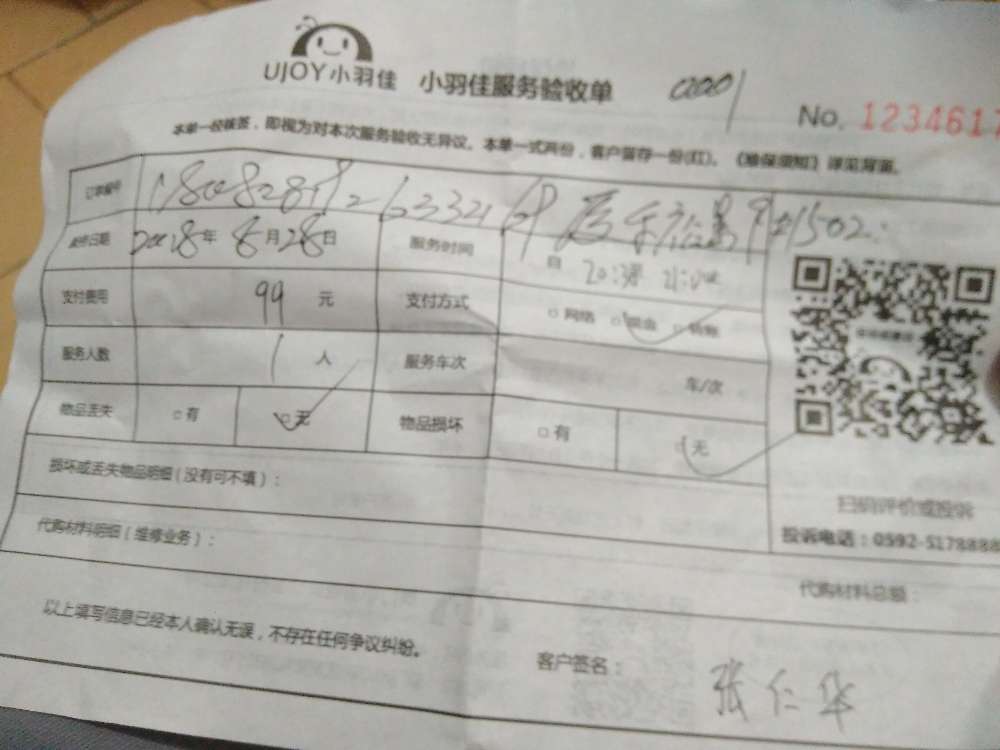 UJOY小羽佳 小羽佳服务验收单 0001 No. 1234617
本单一经核签，即视为对本次服务验收无异议。本单一式两份，客户留存一份(红)。《维保须知》详见背面。
订单编号 1502
服务日期 2018年 8月28日 服务时间
支付费用 99 元 支付方式 □网络 □现金 □转账
服务人数 1 人 服务车次 车/次
物品丢失 □有 □无 物品损坏 □有 □无
损坏或丢失物品明细（没有可不填）：
扫码评价或投诉
代购材料明细（维修业务）：
投诉电话：0592-5178888
代购材料总额：
以上填写信息已经本人确认无误，不存在任何争议纠纷。
客户签名： 张仁华